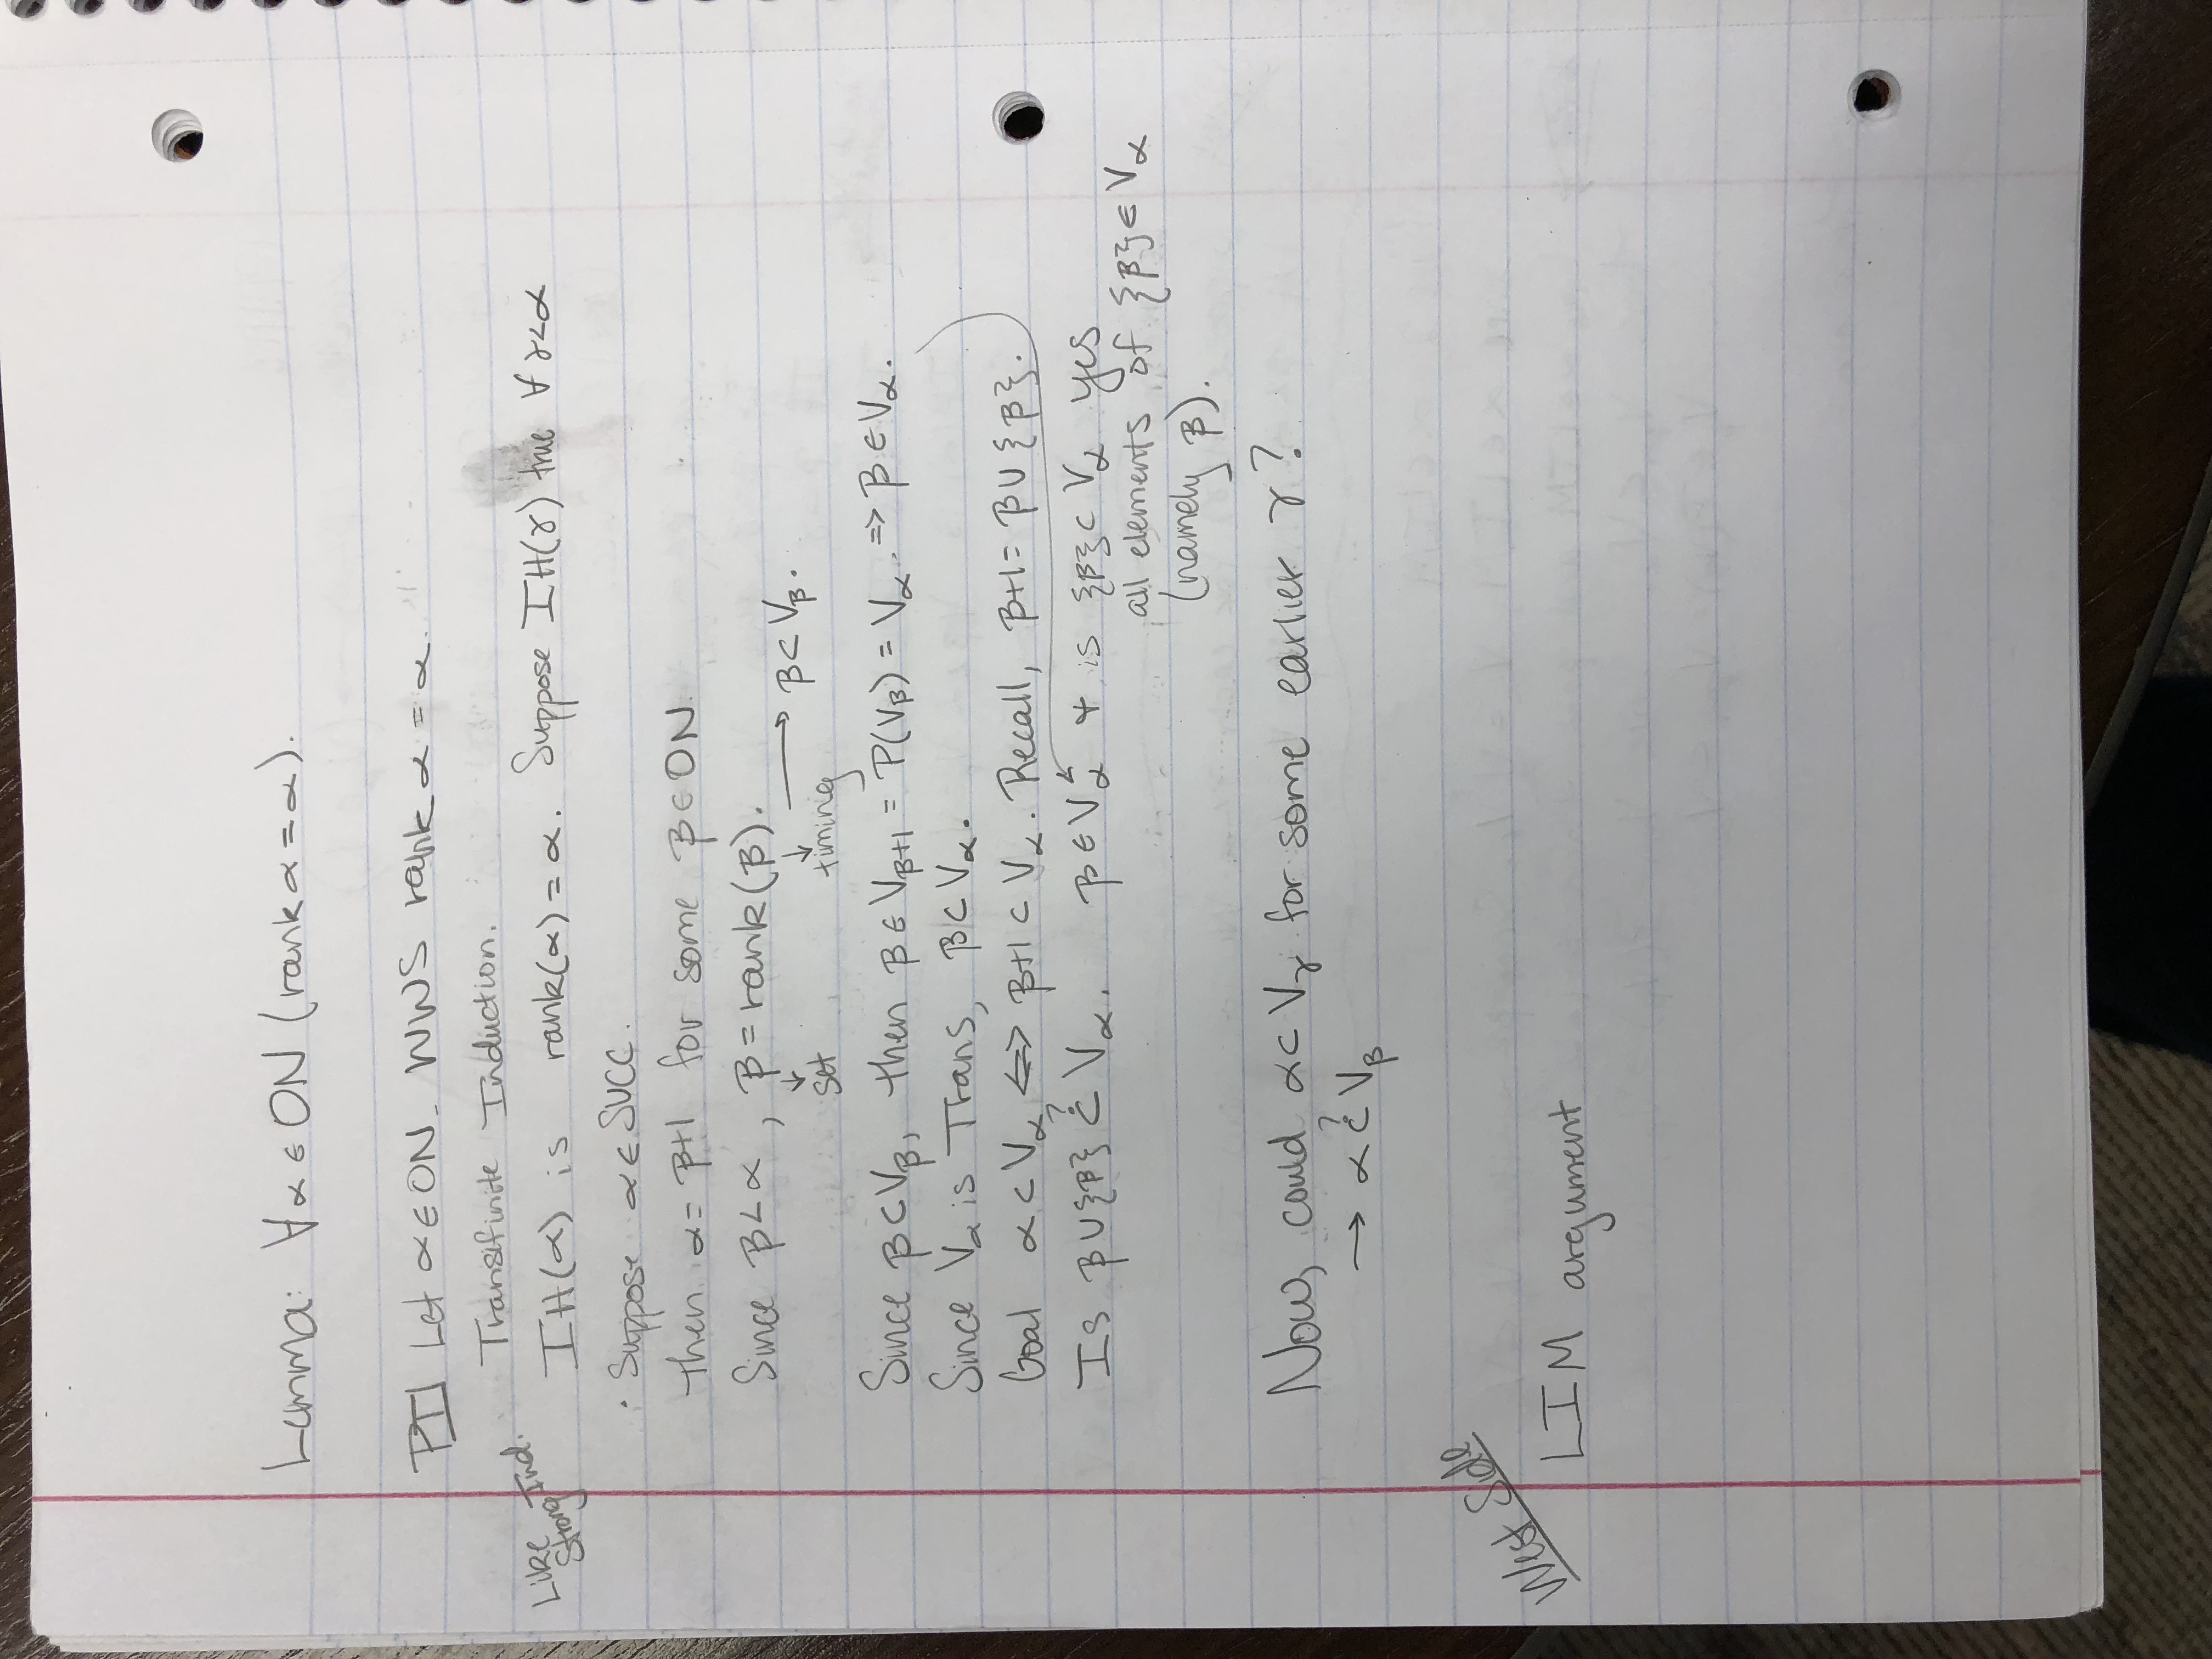 Lemma: ∀α∈ON (rank α = α).
Pf] Let α∈ON. WWS rank α = α.
Transfinite Induction.
Like Strong Ind.
IH(α) is rank(α) = α. Suppose IH(γ) true ∀γ<α
· Suppose α∈SUCC.
Then α = β+1 for some β∈ON.
Since β<α, β = rank(β). → β⊂V_β.
↓ set ↓ timing
Since β⊂V_β, then β∈V_{β+1} = P(V_β) = V_α. ⇒ β∈V_α.
Since V_α is Trans, β⊂V_α.
Goal α⊂V_α ⇔ β+1⊂V_α. Recall, β+1 = β∪{β}.
Is β∪{β} ⊂? V_α. β∈V_α + is {β}⊂V_α yes
all elements of {β}∈V_α
(namely β).
Now, could α⊂V_γ for some earlier γ?
→ α ⊂? V_β
West Side
LIM argument